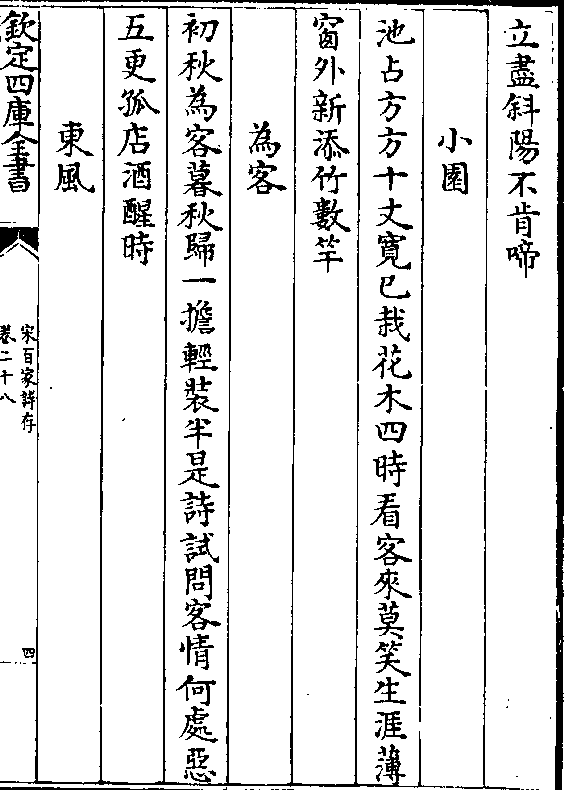 立盡斜陽不肯啼
小園
池占方方十丈寬已栽花木四時看客來莫笑生涯薄
窗外新添竹數竿
為客
初秋為客暮秋歸一擔輕裝半是詩試問客情何處惡
五更孤店酒醒時
東風
欽定四庫全書
宋百家詩存
卷二十八
四